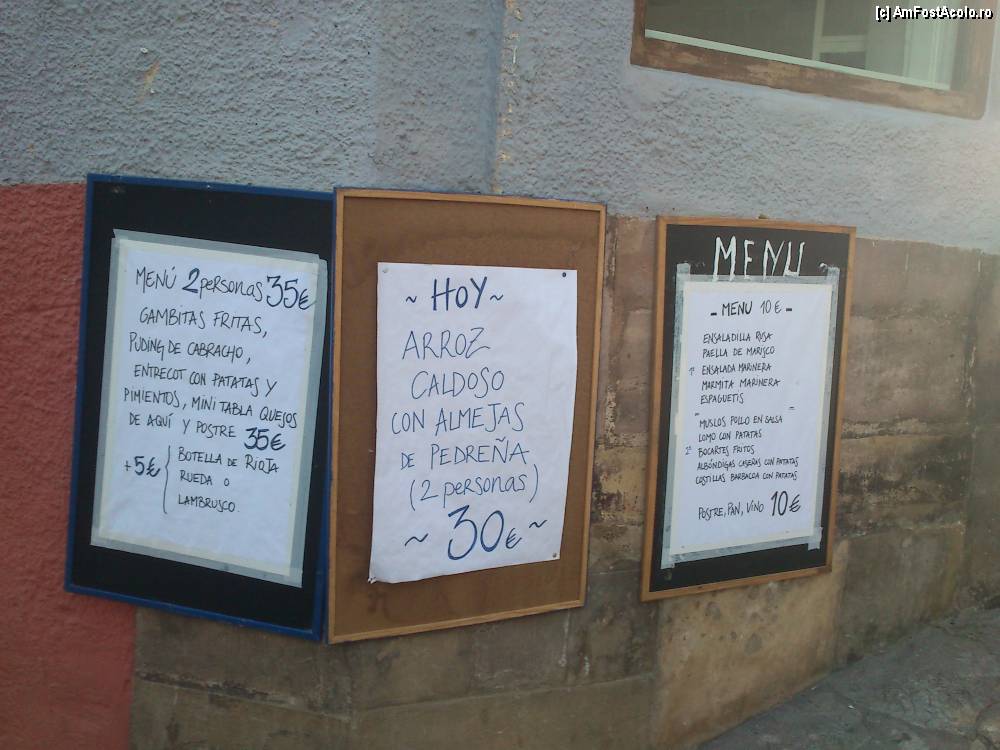 [c] AmFostAcolo.ro
MENÚ 2 personas 35€
GAMBITAS FRITAS,
PUDING DE CABRACHO,
ENTRECOT CON PATATAS Y
PIMIENTOS, MINI TABLA QUEJOS
DE AQUÍ Y POSTRE 35€
+5€ { BOTELLA DE RIOJA
RUEDA O
LAMBRUSCO.
~ HOY ~
ARROZ
CALDOSO
CON ALMEJAS
DE PEDREÑA
(2 personas)
~ 30€ ~
MENU
- MENU 10€ -
ENSALADILLA RUSA
PAELLA DE MARISCO
1º ENSALADA MARINERA
MARMITA MARINERA
ESPAGUETIS
MUSLOS POLLO EN SALSA
LOMO CON PATATAS
2º BOCARTES FRITOS
ALBÓNDIGAS CASEÑAS CON PATATAS
COSTILLAS BARBACOA CON PATATAS
POSTRE, PAN, VINO 10€